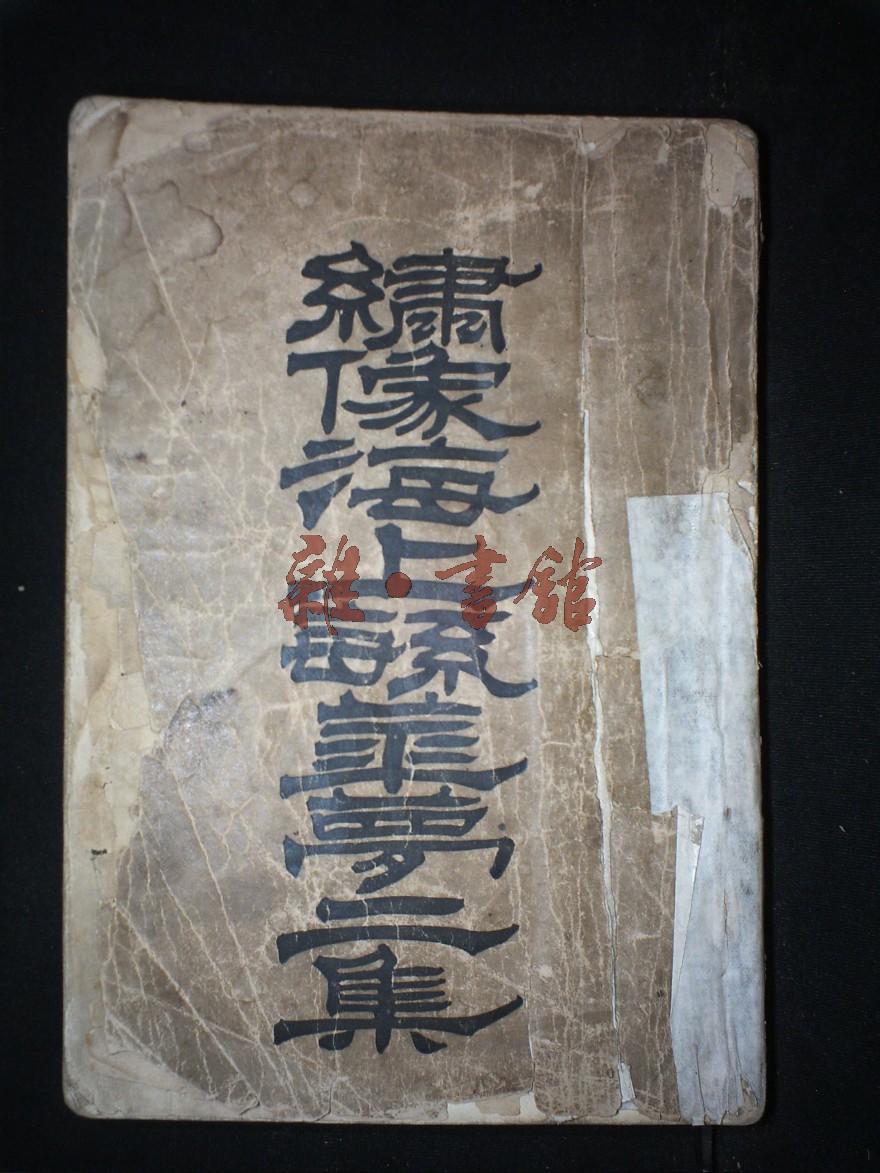 繡像海上緐華夢二集
雜·書館